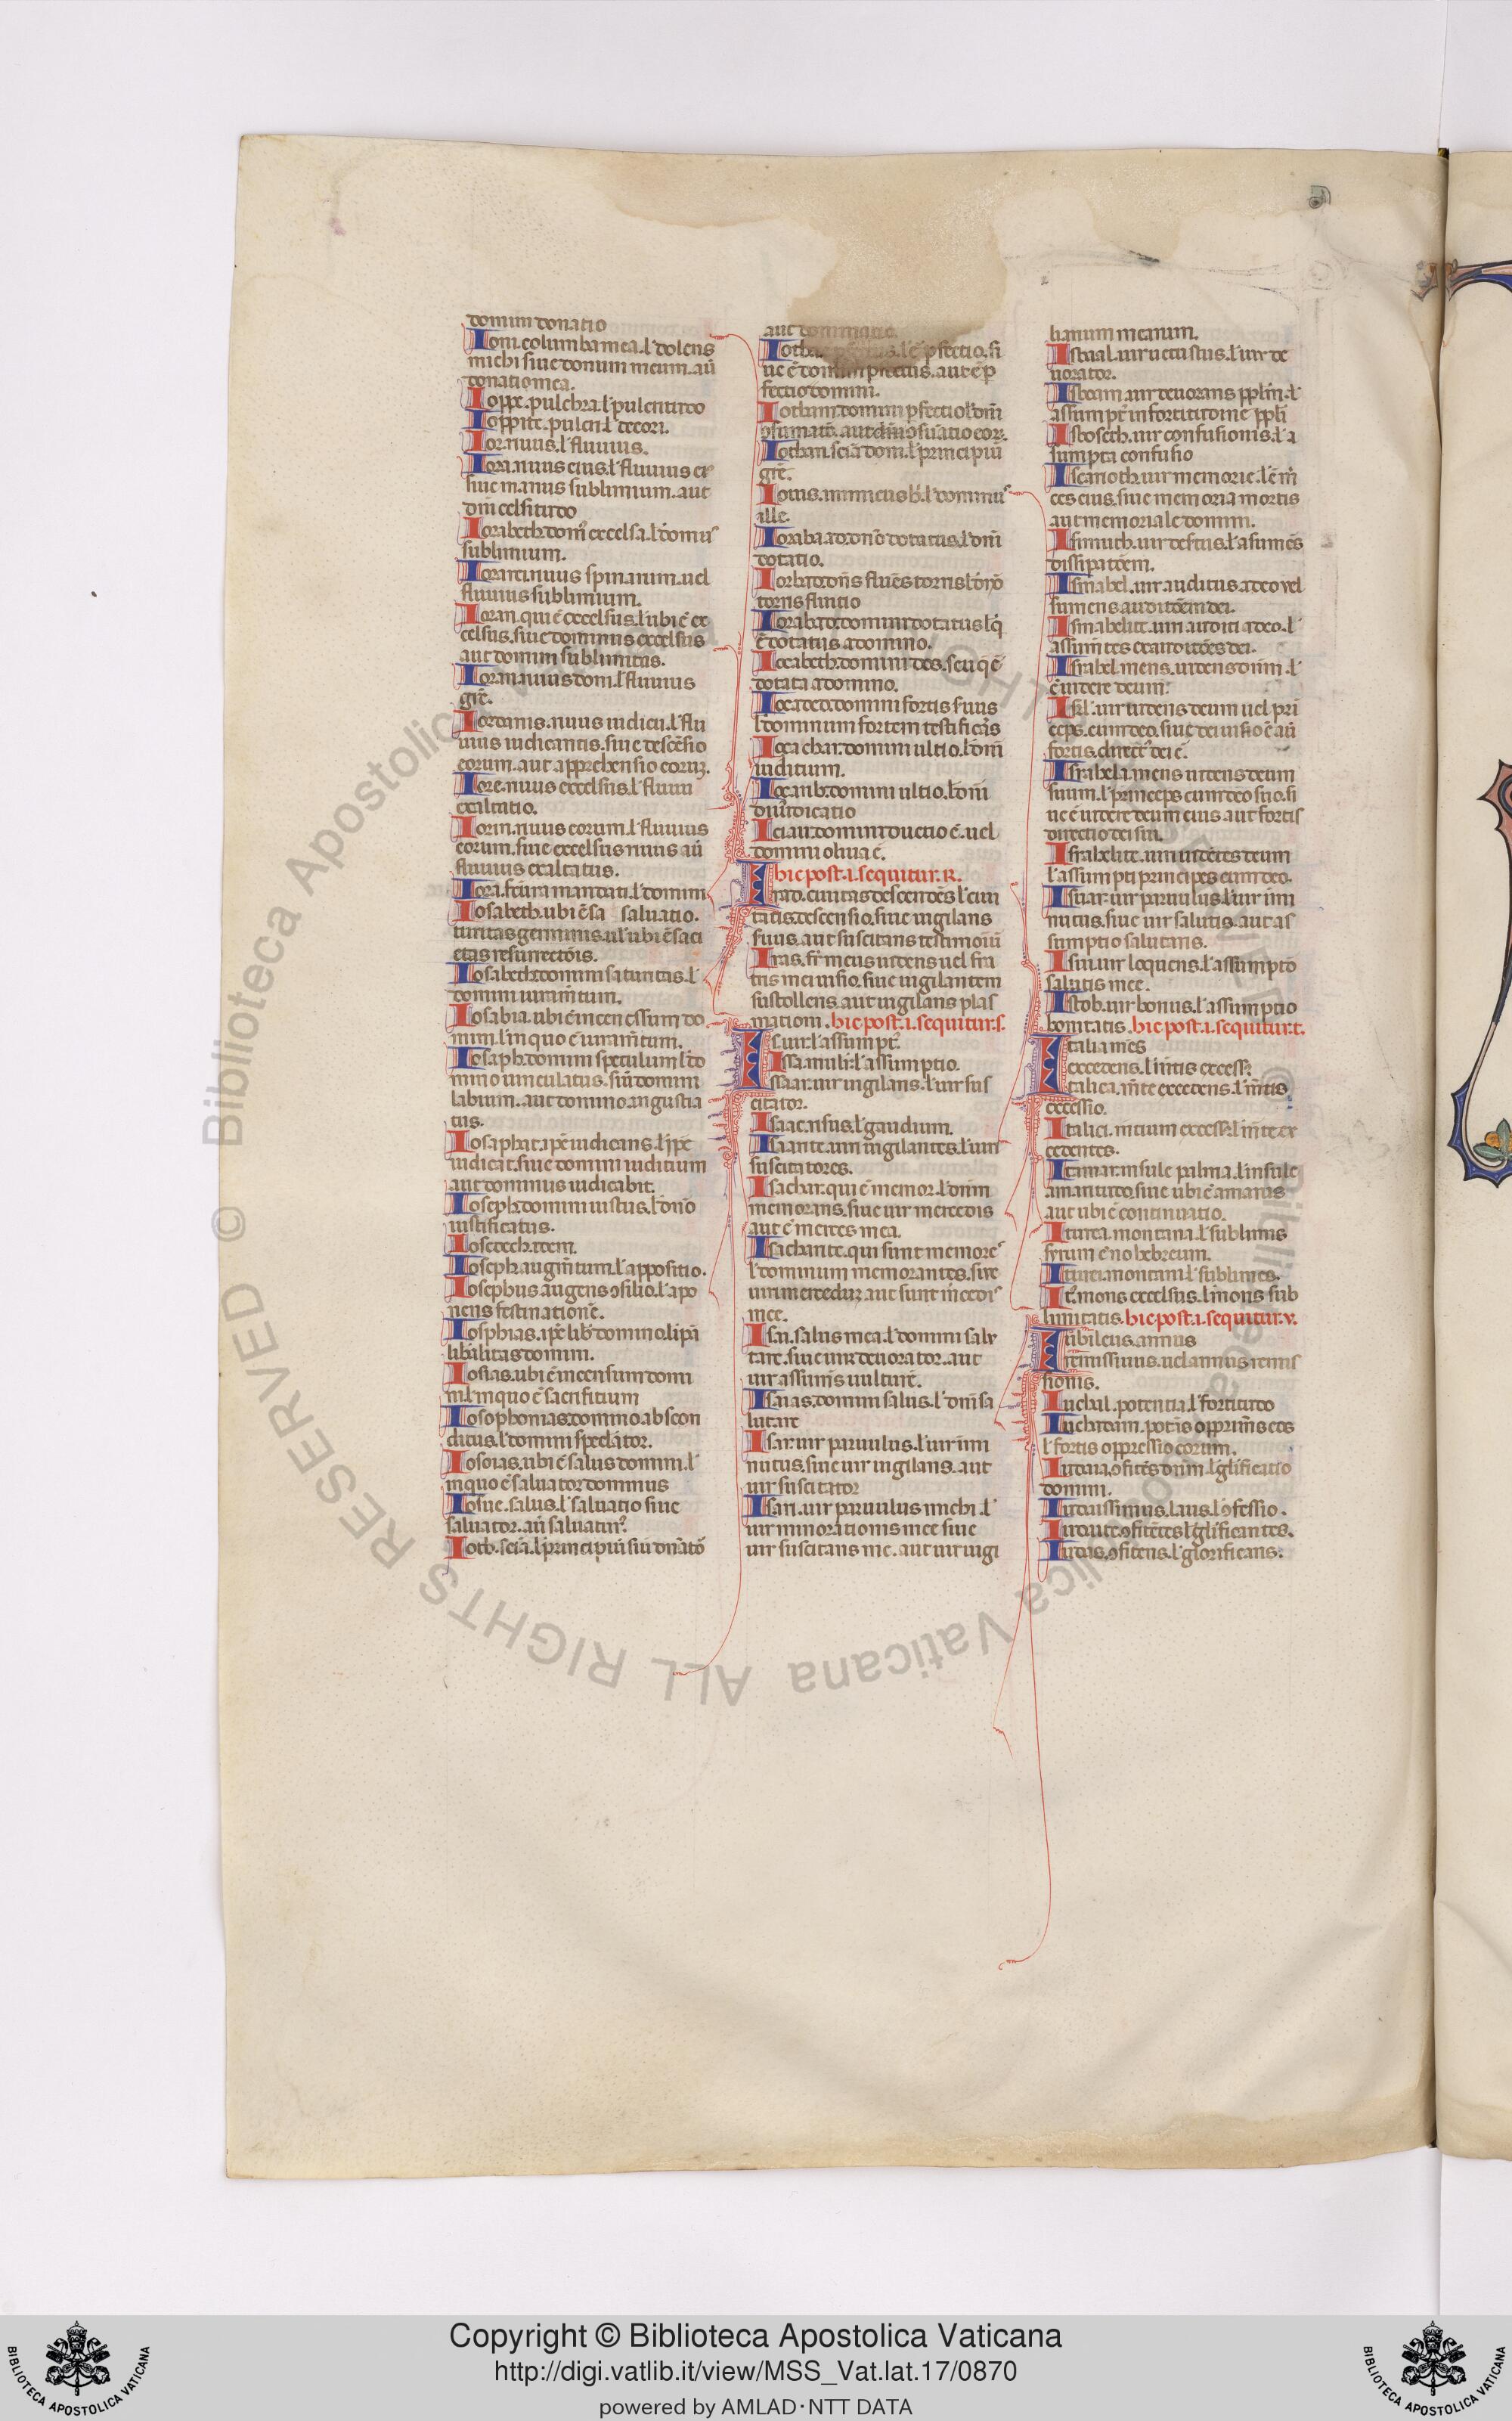 domini donatio
Iom. columba mea. ł dolens
michi siue donum meum. aū
donatio mea.
Ioppe. pulchra. ł pulcritudo
Ioppite. pulcri. ł decori.
Ior. riuus. ł fluuius.
Iora. riuus eius. ł fluuius ei
siue manus sublimium. aut
dñi celsitudo
Iorabeth. dom excelsa. ł domus
sublimium.
Iorarei. riuus spinarum. uel
fluuius sublimium.
Ioran. qui ē excelsus. ł ubi ē ex
celsus. siue dominus excelsus
aut domini sublimitas.
Ioran. riuus dom. ł fluuius
grē.
Iordanis. riuus iudicii. ł flu
uius iudicantis. siue descēsio
eorum. aut apprehensio eoruꝫ.
Iore. riuus excelsus. ł fluuii
exaltatio.
Iorin. riuus eorum. ł fluuius
eorum. siue excelsus riuus aū
fluuius exaltatus.
mandati. ł domini
Iosabeth. ubi ē sa saluatio.
turitas geminis. uł ubi ē saci
etas resurrectōis.
Iosabeth. domini saturitas. ł
domini iuram̄tum.
Iosabia. ubi ē incenssum do
mini. ł in quo ē iuram̄tum.
Iosaph. domini speculum ł do
mino uinculatus. siū domini
labium. aut domino angustia
tus.
Iosaphat. ipē iudicans. ł ipē
iudicat. siue domini iuditium
aut dominus iudicabit.
Ioseph. domini iustus. ł dño
iustificatus.
Iosedech. item.
Ioseph. augm̄tum. ł appositio.
Iosephus augens ꝯsilio. ł apo
nens festinationē.
Iosphias. ipē lib domino. ł ipā
libalitas domini.
Iosias. ubi ē incensum domi
ni. ł in quo ē sacrifitium
Iosophonias. domino abscon
ditus. ł domini speclator.
Iosoias. ubi ē salus domini. ł
in quo ē saluator dominus
Iosue. salus. ł saluatio siue
saluator. aū saluatur.
Ioth. sciā. ł principiū siū dn̄atō
aut dominatio.
ł ē pfectio. si
ue ē domini pfectus. aut ē p
fectio domini.
Iotham. domini pfectio ł dn̄i
ꝯsumatū. aut dn̄i ꝯsūatio eoꝝ.
Iothan. sciā dom. ł principiū
grē.
Iouis. inimicus ł dominus
ille.
Ioraba. a dn̄o dotatus. ł dn̄i
dotatio.
tornis fluitio
Iorabad. domini dotatus ł q
ē dotatus a domino.
Iozabeth. domini dos. seu q ē
dotata a domino.
Iozadeo. domini fortis suus
ł dominum fortem testificās
Iozachar. domini ultio. ł dn̄i
iuditium.
Iozaub. domini ultio. ł dn̄i
diiudicatio
Iciau. domini ductio ē. uel
domini oliua ē.
hic post .i. sequitur .R.
Irad. ciuitas descendēs ł ciui
tatis descensio. siue uigilans
suus. aut suscitans testimoiū
Iras. fr̄ meus uidens uel fra
tris mei uisio. siue uigilantem
sustollens. aut uigilans plas
mationi. hic post .i. sequitur .s.
Is. uir. ł assumpt.
Issa. mulr̄. ł assumptio.
Issaar. uir uigilans. ł uir sus
citator.
Isaac. risus. ł gaudium.
Isaarite. uiri uigilantes. ł uiri
suscitatores.
Isachar. qui ē memor. ł dn̄m
memorans. siue uir mercedis
aut ē merces mea.
Isacharite. qui sunt memores
ł dominum memorantes. siue
uiri mercedum. aut sunt mercedis
mee.
Isai. salus mea. ł domini salu
tare. siue uir deuorator. aut
uir assum̄s uulturē.
Isaias. domini salus. ł dn̄i sa
lutare
Isar. uir paruulus. ł uir imi
nutus. siue uir uigilans. aut
uir suscitator
Isari. uir paruulus michi. ł
uir minorationis mee siue
uir suscitans me. aut uir uigi
lianum meanum.
Isbaal. uir uetustus. ł uir de
uorator.
Isboam. uir deuorans ppłm. ł
assumpt in fortitudine ppłi
Isboseth. uir confusionis. ł a
sumpta confusio
Iscarioth. uir memorie. ł ē m̄
ces eius. siue memoria mortis
aut memoriale domini.
dissipatōem.
Ismahel. uir auditus a deo uel
sumens auditōem dei.
Ismahelite. uiri auditi a deo. ł
assum̄tes exauditōes dei.
Israhel. mens uidens dn̄m. ł
ē uidere deum.
Isrł. uir uidens deum uel prī
ceps cum deo. siue dei uisio ē aū
fortis. direct dei ē.
Israhela. mens uidens deum
suum. ł princeps cum deo suo. si
ue ē uidere deum eius aut fortis
directio dei sui.
Israhelite. uiri uidētes deum
ł assumpti principes cum deo.
Isuar. uir paruulus. ł uir imi
nutus. siue uir salutis. aut as
sumptio salutaris.
Isui. uir loquens. ł assumptō
salutis mee.
Istob. uir bonus. ł assumptio
bonitatis. hic post .i. sequitur .t.
Italia mēs
excedens. ł m̄tis excess.
Italica. m̄te excedens. ł m̄tis
excessio.
Italici. mtium excess. ł m̄te ex
cedentes.
Itamar. insule palma. ł insule
amaritudo. siue ubi ē amarus
aut ubi ē continuatio.
Iturea. montana. ł sublimis
syrum ē nō hebreum.
Iturei. montani. ł sublimes.
It. mons excelsus. ł mons sub
limitatis. hic post .i. sequitur .v.
Iubileus. annus
remissiuus. uel annus remis
sionis.
Iuchal. potentia. ł fortitudo
Iuchadam. potēs opprim̄s eos
ł fortis oppressio eorum.
Iudaia. ꝯfitēs dn̄m. ł glificatio
domini.
Iudaissimus. laus. ł ꝯfessio.
Iudaite. ꝯfitētes ł glificantes.
Iudas. ꝯfitens. ł glorificans.
Copyright © Biblioteca Apostolica Vaticana
http://digi.vatlib.it/view/MSS_Vat.lat.17/0870
powered by AMLAD · NTT DATA